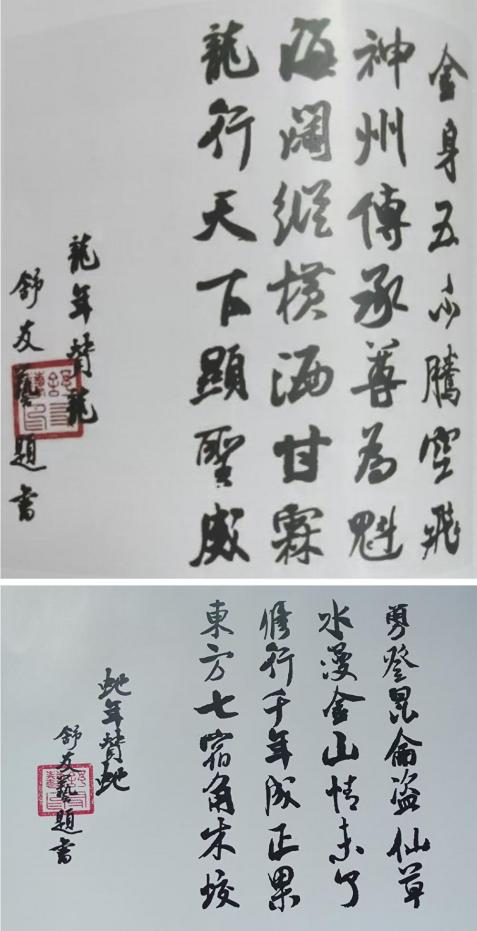 金身五爪騰空飛
神州傳承尊為魁
海闊縱橫洒甘霖
龍行天下顯聖威
龍年贊龍
舒友藝題書
勇登昆侖盜仙草
水漫金山情未了
修行千年成正果
東方七宿角木蛟
蛇年贊蛇
舒友藝題書